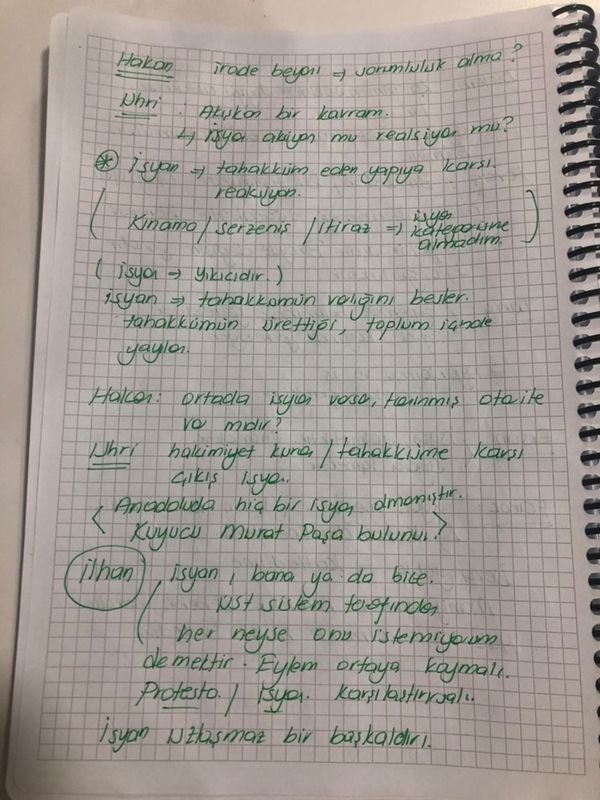 Hakan irade beyanı ⇒ sorumluluk alma?
Uhri : Akışkan bir kavram.
↳ isyan aksiyon mu reaksiyon mu?
* isyan ⇒ tahakküm eden yapıya karşı
reaksiyon.
( Kınama / serzeniş / itiraz ⇒ isyan
kategorisine
almadım. )
( isyan ⇒ yıkıcıdır. )
isyan ⇒ tahakkümün varlığını besler.
tahakkümün ürettiği, toplum içinde
yayılan.
Hakan: ortada isyan varsa, tanınmış otorite
var mıdır?
Uhri hakimiyet kuran / tahakküme karşı
çıkış isyan.
< Anadoluda hiç bir isyan olmamıştır.
Kuyucu Murat Paşa bulunur. >
ilhan isyan, bana ya da bize.
üst sistem tarafından
her neyse onu istemiyorum
demektir. Eylem ortaya koymalı.
Protesto / isyan karşılaştırmalı.
isyan uzlaşmaz bir başkaldırı.